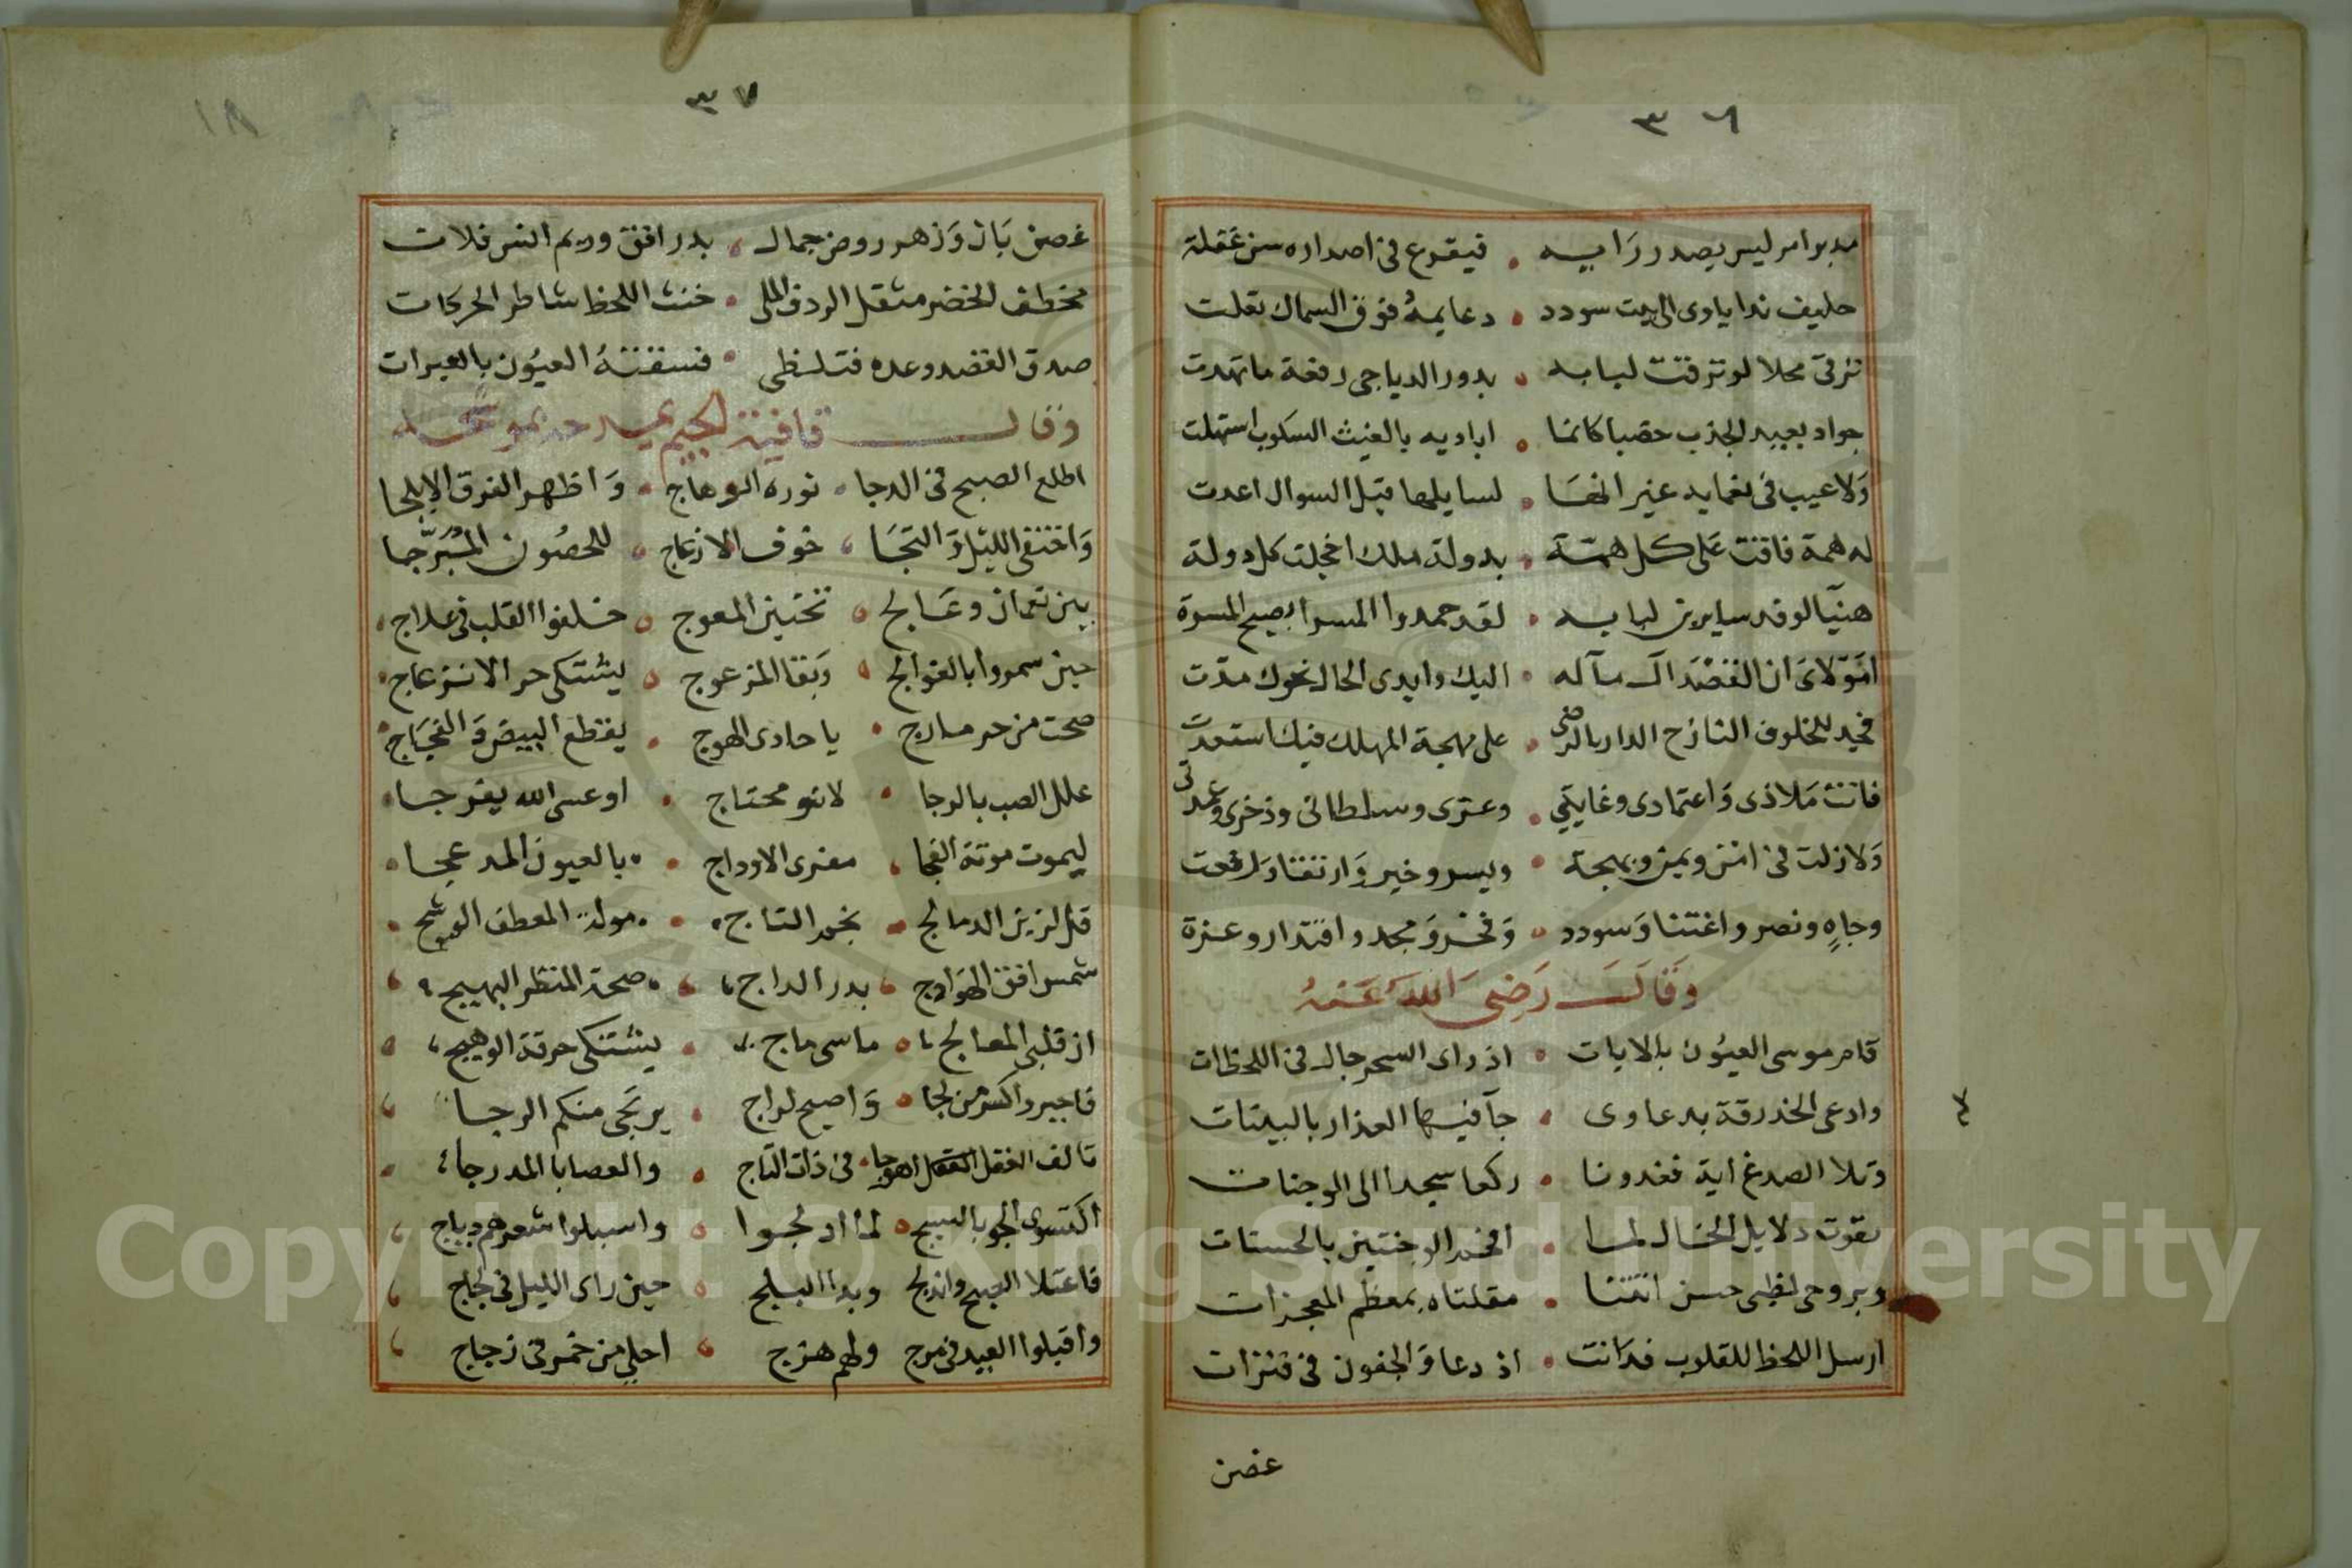 ٣٦
مدبر امر ليس يصدر رَايه • فيقرع في اصداره سن غفلة
حليف ندا ياوى الى بيت سودد • دعايمهُ فوق السماك تعلت
ترقى محلا لو ترقت لبابه • بدور الدياجى رفعة ما تهدت
جواد بعيد الجدب خصبا كانما • اياديه بالغيث السكوب استهلت
وَلا عيب فى نعمايه غير انهَا • لسايلها قبل السوال اعدت
له همة فاقت عَلى كل همّة • بدولة ملك اخجلت كل دولة
هنيّا لوفد سايرين لبابه • لقد حمدوا المسرا بصبح المسرة
امَوْلاىَ ان القصْد آل مآله • اليك وايدى الحال نحوك مدّت
فجد للخلوف النازح الدار بالرضى • على مهجة المهلك فيك استعدت
فانت مَلاذى وَاعتمادى وغايتي • وعزى وسلطانى وذخرى وعدتى
وَلا زلت فى امن ويمن وبهجة • ويسر وخير وَارتقا وَرفعت
وجاهٍ ونصر واغتنا وَسودد • وَفخر وَمجد واقتدار وعزة
وَقالَ رَضى اللهَ عَنهُ
قام موسى العيُون بالايات • اذ راى السحر جال فى اللحظات
وادعى الخد رقة بدعاوى • جآ فيها العذار بالبينات
وتلا الصدغ اية فغدونا • ركعا سجدا الى الوجنات
بقوت دلايل الخال لما • افخم الوجنتين بالحسنات
وبروحى لظبى حسن اتتنا • مقلتاه بمعظم المعجزات
ارسل اللحظ للقلوب فدَانت • اذ دعا وَالجفون فى فترات
غصن
٣٧
١٨
غصن بَان وَزهر روض جمال • بدر افق وريم انس فلات
مخطف الخصر مثقل الردف الملى • خنث اللحظ شاطر الحركات
صدق القصد وعده فتلظى • فسقتهُ العيُون بالعبرات
وَقال قافية الجيم
اطلع الصبح فى الدجا • نوره الوهاج • وَاظهر الفرق الابلجا
وَاختفى الليْل وَالتجَا • خوف الازعاج • للحصُون المُبَرَّجا
بين نعمان وعَالج • تختين المعوج • خلفوا القلب فى علاج
حين سمروا بالغوالج • وَبقا المزعوج • يشتكى حر الانزعاج
صحت من حر مارج • يا حادى الهوج • يقطع البيض وَالفجَاج
علل الصب بالرجا • لانو محتاج • او عسى الله يفرجا
ليموت موتة الفجا • مفرى الاوداج • بالعيون المدعجا
قل لزين الدمالج • نجم التاج • مولة المعطف الوشج
شمس افق الهَوادج • بدر الداج • صحة المنظر البهيج
ان قلبى المعالج • ماسى ماج • يشتكى حرقة الوهيج
فاجيروا كسر من لجا • وَاصيح لراج • يرتجى منكم الرجا
تالف العقل اهوجا • فى ذات التاج • والعصابا المدرجا
اكتسوى الجو بالسبج • لما ادلجوا • واسبلوا شعرهم ديباج
فاعتلا الصبح وانبلج وبدا البلج • حين راى الليل فى لجاج
واقبلوا العيد فى مرج ولهم هزج • احلى من خمر فى زجاج
Copyright © King Saud University